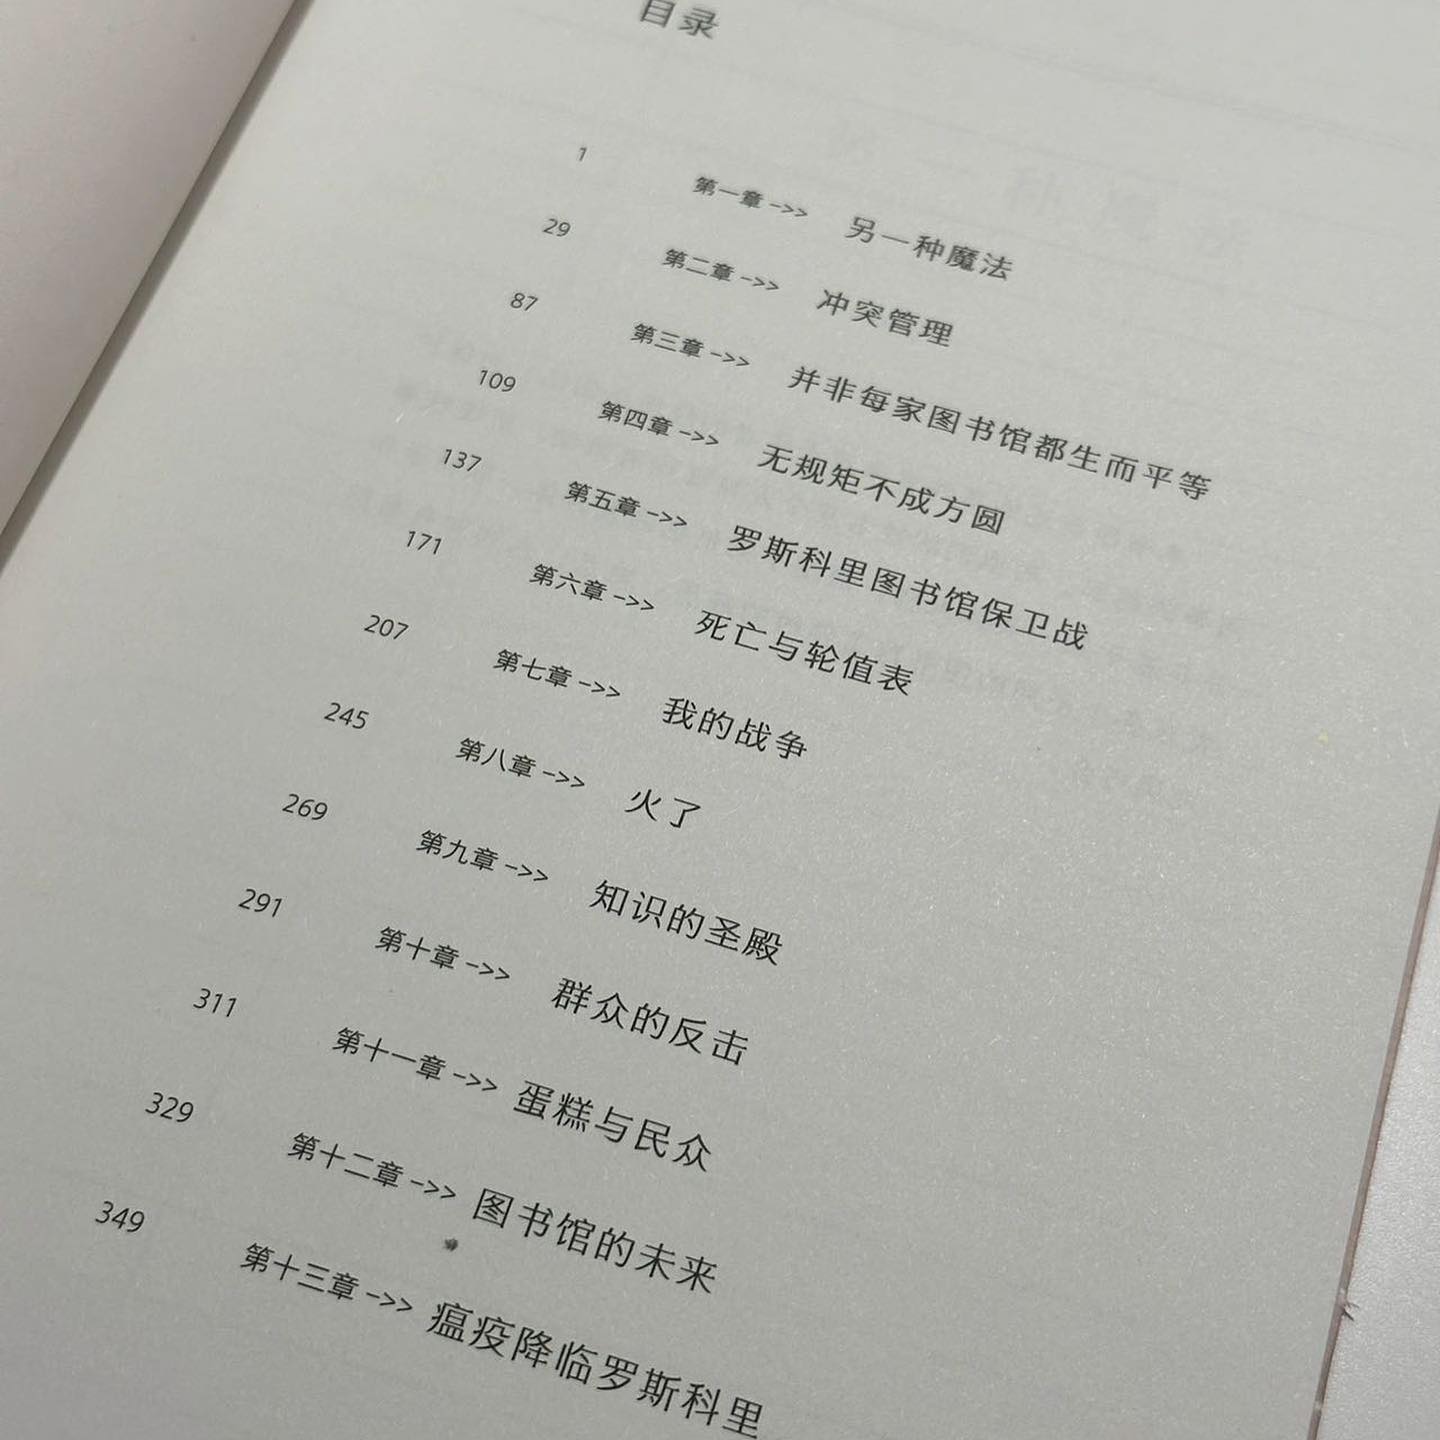 目录
1 第一章 ->> 另一种魔法
29 第二章 ->> 冲突管理
87 第三章 ->> 并非每家图书馆都生而平等
109 第四章 ->> 无规矩不成方圆
137 第五章 ->> 罗斯科里图书馆保卫战
171 第六章 ->> 死亡与轮值表
207 第七章 ->> 我的战争
245 第八章 ->> 火了
269 第九章 ->> 知识的圣殿
291 第十章 ->> 群众的反击
311 第十一章 ->> 蛋糕与民众
329 第十二章 ->> 图书馆的未来
349 第十三章 ->> 瘟疫降临罗斯科里